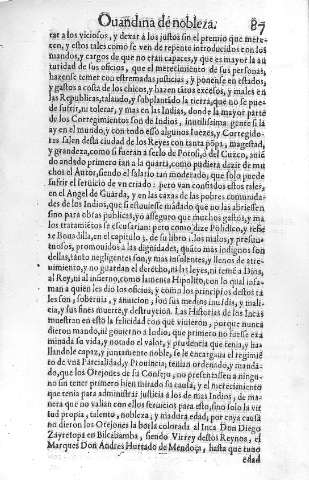 Ouandina de nobleza. 87
tar a los viciosos, y dexar a los justos sin el premio que mere-
cen, y estos tales como se ven de repente introducidos con los
mandos, y cargos de que no eran capaces, y que es mayor la au
toridad de sus oficios, que el merecimiento de sus personas,
hazense temer con estremadas justicias, y ponense en estados,
y gastos a costa de los chicos, y hazen tátos excesos, y males en
las Republicas, talando, y subplantádo la tierra, que no se pue-
de sufrir, ni tolerar, y mas en las Indias, donde la mayor parte
de los Corregimientos son de Indios, inutilissima gente si la
ay en el mundo, y con todo esso algunos Iuezes, y Corregido-
res salen desta ciudad de los Reyes con tanta pópa, magestad,
y grandeza, como si fueran a serlo de Potosi, ó del Cuzco, anié
do andado primero tan a la guarda, como pudiera dezir de mu
chos el Autor, siendo el salario tan moderado, que solo puede
sufrir el seruicio de vn criado: pero van confiados estos tales,
en el Angel de Guarda, y en las caxas de las pobres comunida-
des de los Indios, que si estouiesse mádado que no las abriessen
sino para obras publicas, yo asseguro que muchos gastos, y ma
los tratamiétos se escusarian: pero como dize Polidico, y refie
re Bouadilla, en el capitulo 3. de su libro 1. los malos, y presun-
tuosos, promouidos a las dignidades, quáto mas indignos son
dellas, tanto negligentes son, y mas insolentes, y llenos de atre-
uimiento, y no guardan el derecho, ni las leyes, ni temé a Dios,
al Rey, ni al infierno, como lamenta Hipolito, con lo qual infa-
man a quien les dio los oficios, y como los principios destos ta
les son, soberuia, y ambicion, son sus medios inuidia, y mali-
cia, y sus fines muerte, y destruycion. Las Historias de los Incas
muestran en esto la felicidad con que viuieron, porque nunca
dieron mando, ni gouierno a Iodio, que primero no fuesse exa
minada su vida, y notado el valor, y prudencia que tenia, y ha
llandole capaz, y juntamente noble, se le encargaua el regimié
to de vna Parcialidad, y Prouincia; tenian ordenado, y manda-
do, que los Orejones de su Consejo, no presentassen a ningu-
no sin tener primero bien mirado su causa, y el merecimiento
que tenia para administrar justicia a los demas Indios, de ma-
nera que no valian con ellos seruicios para esto, sino sola la vir
tud propia, talento, nobleza, y madura edad, por cuya causa
no dieron los Orejones la borla colorada al Inca Don Diego
Zayretopa en Bilcabamba, siendo Virrey destos Reynos, el
Marques Don Andres Hurtado de Mendoça, hasta que tuuo
edad